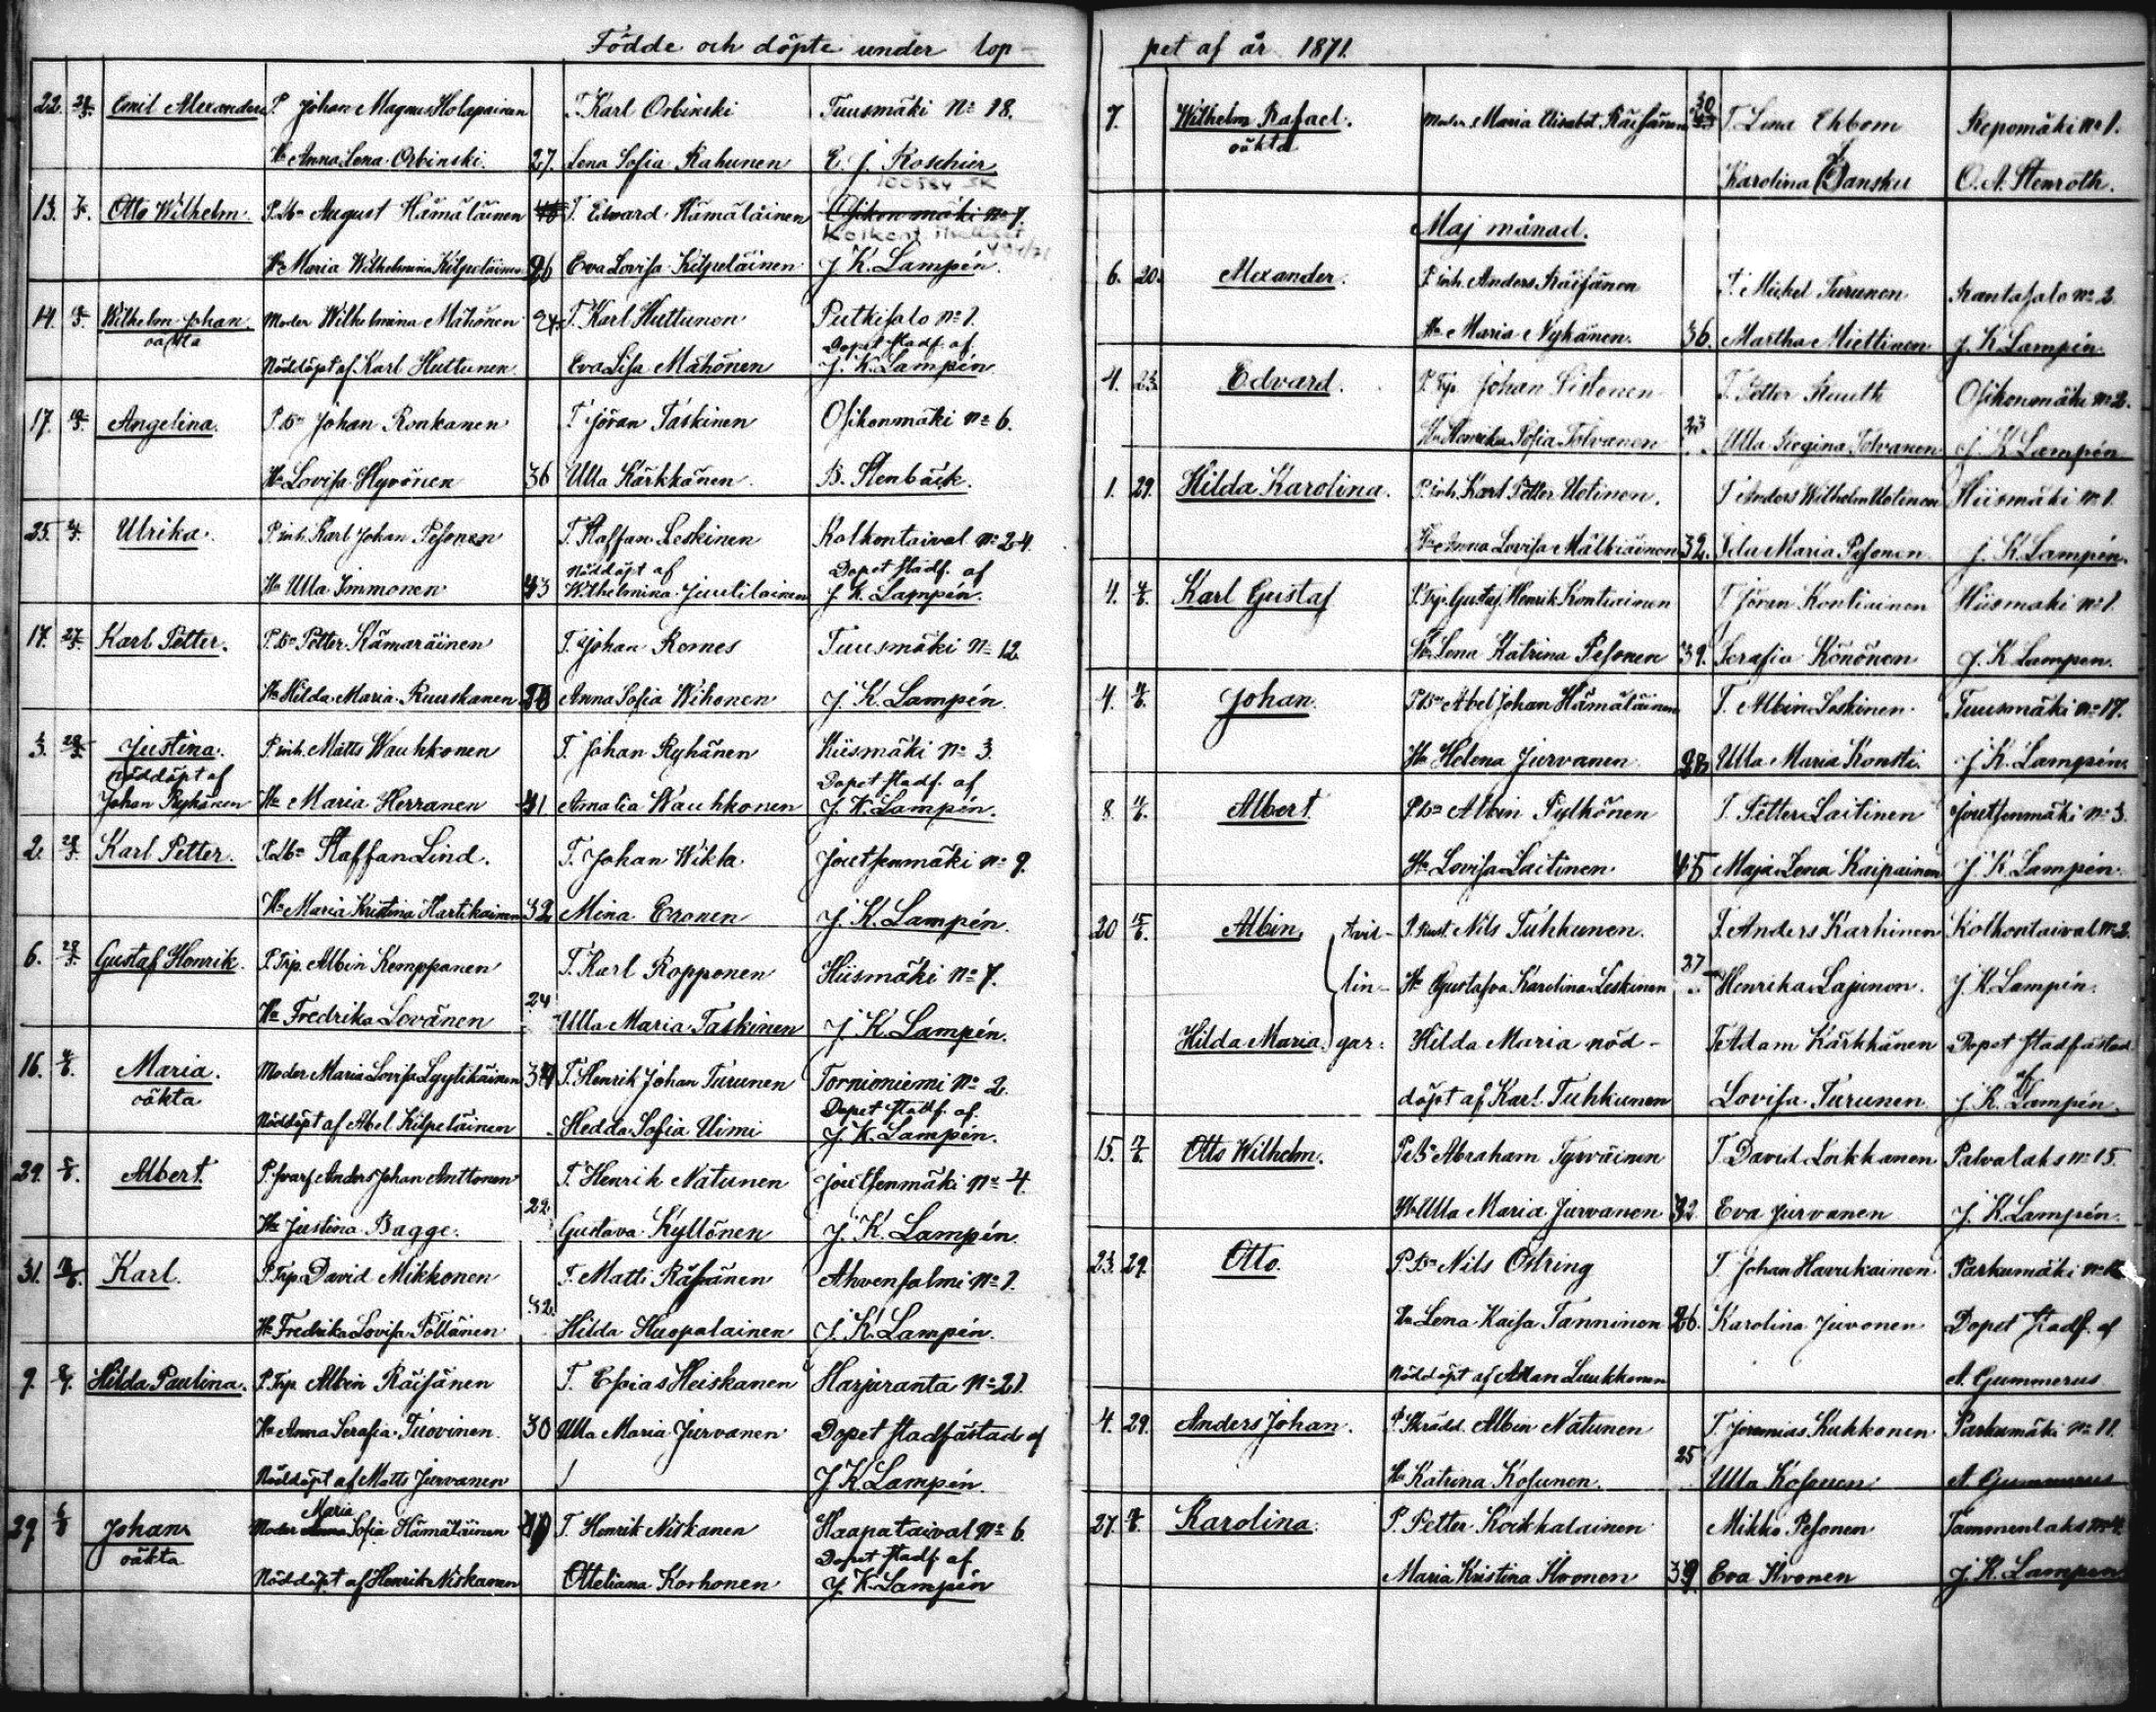 Födde och döpte under lop-
22. Emil Alexander P. Johan Magnus Holopainen T. Karl Orbinski Tuusmäki No 18.
Hu Anna Lena Orbinski. 27. Lena Sofia Rahunen E. J. Roschier
13. Otto Wilhelm. August Hämäläinen T. Edvard Hämäläinen Osikonmäki No 7.
Hu Maria Wilhelmina Kilpeläinen 26 Eva Lovisa Kilpeläinen J. K. Lampén.
14. Wilhelm Johan Moder Wilhelmina Mähönen 24. T. Karl Huttunen Putkisalo No 1.
oäkta Dopet stadf. af
Nöddöpt af Karl Huttunen. Eva Lisa Mähönen J. K. Lampén
17. Angelina. Johan Ronkanen T. Jöran Taskinen Osikonmäki No 6.
Hu Lovisa Hyvönen 36 Ulla Kärkkänen. B. Stenbäck.
25. Ulrika. P. inh. Karl Johan Pesonen T. Staffan Leskinen Kolkontaival No 24.
Nöddöpt af Dopet stadf. af
Hu Ulla Immonen 43 Wilhelmina Juutilainen J. K. Lampén.
17. 27/5 Karl Petter. Petter Kämäräinen T. Johan Romes Tuusmäki No 12
Hu Hilda Maria Ruuskanen Anna Sofia Wihonen J. K. Lampén.
3. 28/5 Justina. P. inh. Matts Wauhkonen T. Johan Ryhänen Hiismäki No 3.
Nöddöpt af Dopet stadf. af
Johan Ryhänen Hu Maria Herranen 41. Amalia Wauhkonen J. K. Lampén.
2. 28/5 Karl Petter. Staffan Lind. T. Johan Wikla Joutsenmäki No 9.
Hu Maria Kristina Hartikainen 32 Mina Eronen J. K. Lampén.
6. 28/5 Gustaf Henrik. P. Trp. Albin Kemppanen T. Karl Ropponen Hiismäki No 7.
Hu Fredrika Lovänen 24 Ulla Maria Taskinen J. K. Lampén.
16. Maria. Moder Maria Lovisa Lyytikäinen T. Henrik Johan Turunen Tornioniemi No 2.
oäkta Dopet stadf. af.
Nöddöpt af Abel Kilpeläinen Hedda Sofia Uimi J. K. Lampén.
29. Albert. Anders Johan Anttonen T. Henrik Natunen Joutsenmäki No 4.
Hu Justina Bagge. 22 Gustava Kyllönen J. K. Lampén.
31. Karl. P. Trp. David Mikkonen T. Matti Räisänen Ahvensalmi No 1.
Hu Fredrika Lovisa Pöllänen 32. Hilda Huopalainen J. K. Lampén.
9. Hilda Paulina. P. Trp. Albin Räisänen T. Esaias Heiskanen Harjuranta No 21.
Hu Anna Serafia Tuovinen. 30 Ulla Maria Jurvanen Dopet stadfästad af
Nöddöpt af Matts Jurvanen J. K. Lampén.
Maria
29 Johan Moder Anna Sofia Hämäläinen T. Henrik Niskanen Haapataival No 6.
oäkta Dopet stadf. af
Nöddöpt af Henrik Niskanen Otteliana Korhonen J. K. Lampén
pet af år 1871.
7. Wilhelm Rafael. Moder Maria Elisabet Räisänen 30 T. Lena Ekbom Repomäki No 1.
oäkta
Karolina Dansku O. A. Stenroth.
Maj månad.
6. 20. Alexander. P. inh. Anders Räisänen T. Mickel Turunen Rantasalo No 2.
Hu Maria Nykänen. 36. Martha Miettinen J. K. Lampén.
4. 23. Edvard. P. Trp. Johan Sistonen T. Petter Knuth Osikonmäki No 2.
Hu Henrika Sofia Tolvanen 23 Ulla Regina Tolvanen J. K. Lampén
1. 29. Hilda Karolina. P. inh. Karl Petter Uotinen. T. Anders Wilhelm Uotinen Hiismäki No 1.
Hu Anna Lovisa Mälkiäinen 32. Ida Maria Pesonen J. K. Lampén.
4. Karl Gustaf P. Trp. Gustaf Henrik Kontiainen T. Jöran Kontiainen Hiismäki No 1.
Hu Lena Katrina Pesonen 39. Serafia Könönen J. K. Lampén.
4. Johan. Abel Johan Hämäläinen T. Albin Leskinen. Tuusmäki No 17.
Hu Helena Jurvanen 28 Ulla Maria Kontti. J. K. Lampén.
8. Albert. Albin Pylkönen T. Petter Laitinen Joutsenmäki No 3.
Hu Lovisa Laitinen 45 Maja Lena Kaipainen J. K. Lampén.
20 15/6. Albin, tvil- Nils Tuhkunen. T. Anders Karhinen Kolkontaival No 2.
lin- Hu Gustafva Karolina Leskinen 37 Henrika Lajunen. J. K. Lampén.
Hilda Maria gar. Hilda Maria nöd- T. Adam Kärkkänen Dopet stadfästad
af
döpt af Karl Tuhkunen Lovisa Turunen J. K. Lampén.
15. Otto Wilhelm. Abraham Tyrväinen T. David Loikkanen Palvalaks No 15.
Hu Ulla Maria Jurvanen 32. Eva Jurvanen J. K. Lampén.
23. 29. Otto. Nils Östring T. Johan Havukainen Parkumäki No
Hu Lena Kaisa Tanninen 26. Karolina Juvonen Dopet stadf. af
Nöddöpt af Adam Luukkonen A. Gummerus
4. 29. Anders Johan. P. Skrädd. Albin Natunen T. Jeremias Kuhkonen Parkumäki No 11.
Hu Katrina Kosunen. 25 Ulla Kosonen A. Gummerus
27. Karolina. P. Petter Koikkalainen Mikko Pesonen Tammenlaks No 4.
Maria Kristina Kivonen 39. Eva Kivonen J. K. Lampén